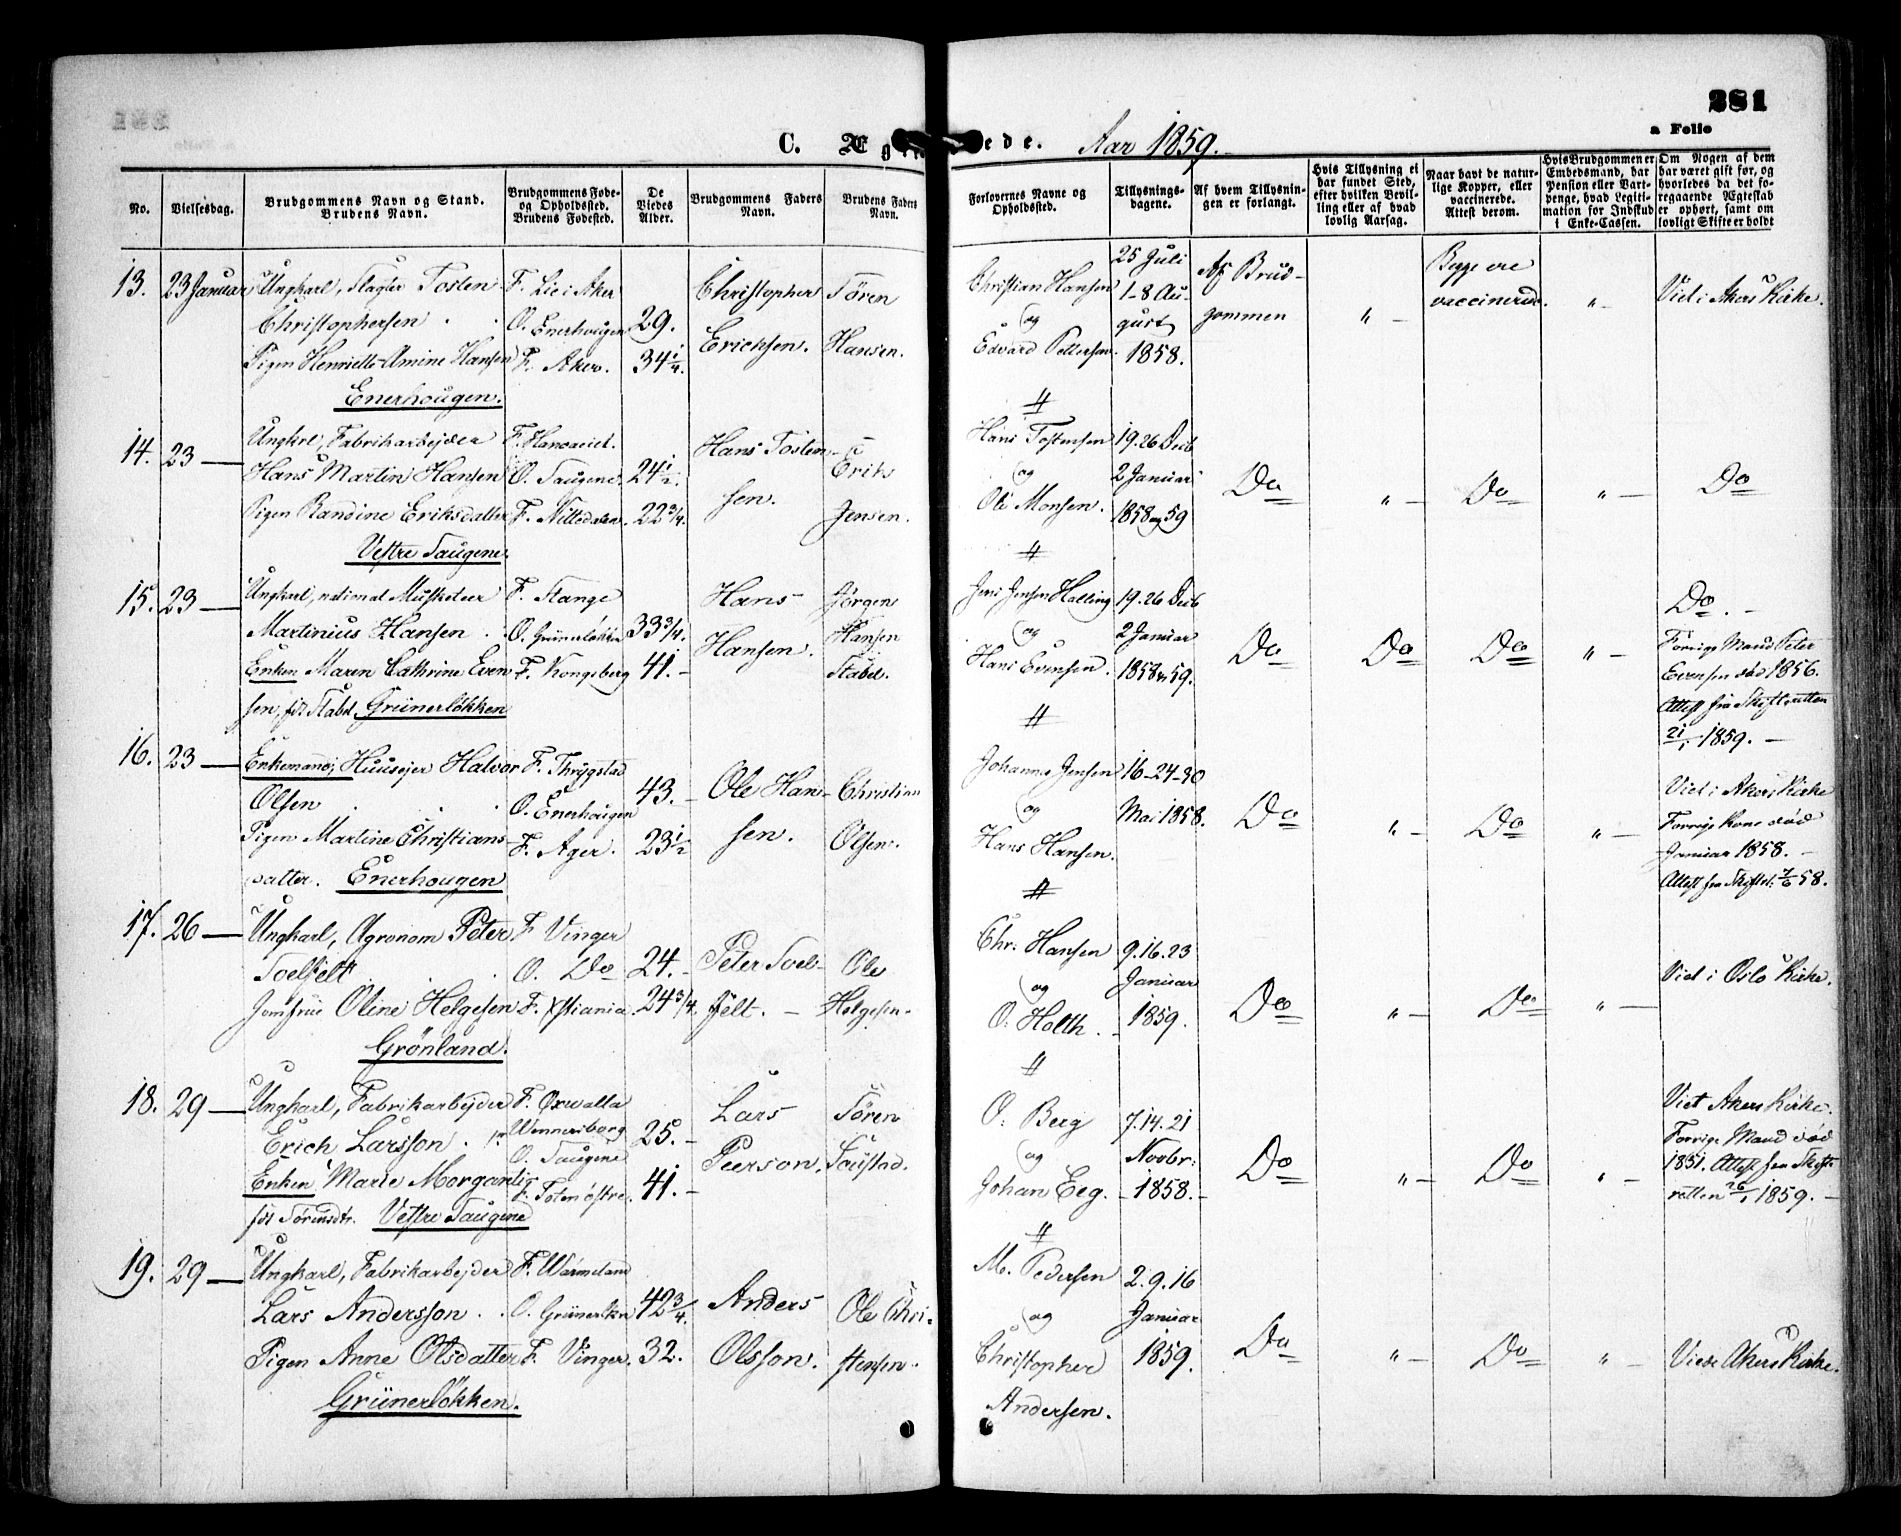 281
a Folio
C. Æg
ede. Aar 1859.
No.
Vielsesdag.
Brudgommens Navn og Stand.
Brudens Navn.
Brudgommens Føde-
og Opholdssted.
Brudens Fødested.
De
Viedes
Alder.
Brudgommens Faders
Navn.
Brudens Faders
Navn.
Forlovernes Navne og
Opholdssted.
Tillysnings-
dagene.
Af hvem Tillysnin-
gen er forlangt.
Hvis Tillysning ei
har fundet Sted,
efter hvilken Bevil-
ling eller af hvad
lovlig Aarsag.
Naar havt de natur-
lige Kopper, eller
vaccinerede.
Attest derom.
Hvis Brudgommen er
Embedsmand, har
Pension eller Vart-
penge, hvad Legiti-
mation for Indskud
i Enke-Cassen.
Om Nogen af dem
har været gift før, og
hvorledes da det fo-
regaaende Ægteskab
er ophørt, samt om
lovligt Skifte er holdt
13. 23 Januar
Ungkarl, Slagter Tosten
Christophersen
Pigen Henriette Amine Hansen
Enerhougen.
F. Lie i Aker
O. Enerhougen
F. Aker.
29.
34 1/4.
Christopher
Ericksen.
Sören
Hansen.
Christian Hansen
og
Edvard Pettersen.
25 Juli
1-8 Au-
gust
1858.
Af Brud-
gommen
" —
Begge ere
vaccinerede.
" -
Viet i Akers Kirke.
14. 23 —
Ungkrl, Fabrikarbejder
Hans Martin Hansen
Pigen Randine Eriksdatter
Vestre Saugene.
O. Saugene.
F. Nittedalen.
24 1/2.
22 3/4.
Hans Tosten-
sen.
Eriks
Jensen.
Hans Tostensen
og
Ole Monsen.
19. 26 Decb
2 Januar
1858 og 59
Do
" —
Do
" —
Do
15. 23 —
Ungkarl, national Musketeer
Martinius Hansen
Enken Maren Cathrine Even
sen, föt Stabel. Grünerlökken
F. Stange
O. Grünerløkken
F. Kongsberg
33 3/4.
41. -
Hans
Hansen.
Jörgen
Hansen
Stabel.
Jens Jensen Halling
og
Hans Evensen.
19. 26 Decb
2 Januar
1858 59.
Do
Do
Do
" —
Do. -
Forrige Mand Peter
Evensen död 1856.
Attest fra Skifteretten
21/1 1859. -
16. 23 —
Enkemand, Huusejer Halvor
Olsen
Pigen Martine Christians-
datter. Enerhougen
F. Thrygstad
O. Enerhougen
F. Ager.
43. -
23 1/2
Ole Han-
sen.
Christian
Olsen.
Johannes Jensen
og
Hans Hansen.
16-24-30
Mai 1858.
Do
" —
Do
" —
Viet i Akers Kirke
Forrige Kone död
Januar 1858. -
Attest fra Skifter. 7/6 58.
17. 26 —
Ungkarl, Agronom Peter
Soelfelt
Jomfrue Oline Helgesen
Grönland.
F. Vinger
O. Do
F. Xstiania.
24. -
24 3/4.
Peter Soel-
felt. -
Ole
Helgesen.
Chr. Hansen
og
O. Holth.
9. 16. 23
Januar
1859.
Do
" —
Do
" —
Viet i Oslo Kirke.
18. 29 —
Ungkarl, Fabrikarbejder
Erich Larsson.
Enken Marie Morganlie
föt Sörensdtr. Vestre Saugene
F. Oxwalla
Wennersborg
O. Saugene
F. Toten østre.
25. -
41. -
Lars
Peerson.
Sören
Soustad.
O. Berg
og
Johan Eeg.
7. 14. 21
Novbr:
1858. -
Do
" —
Do
" -
Viet Akers Kirke.
Forrige Mand död
1851. Attest fra Skifte
retten 26/1 1859. -
19. 29 —
Ungkarl, Fabrikarbejder
Lars Andersson
Pigen Anne Olsdatter
Grünerlökken.
F. Wärmeland
O. Grünerlkn
F. Vinger.
42 3/4.
32.
Anders
Olsson.
Ole Chri-
stensen.
M. Pedersen
og
Christopher
Andersen.
2. 9. 16
Januar
1859.
Do
" —
Do
" —
Viede Akers Kirke.